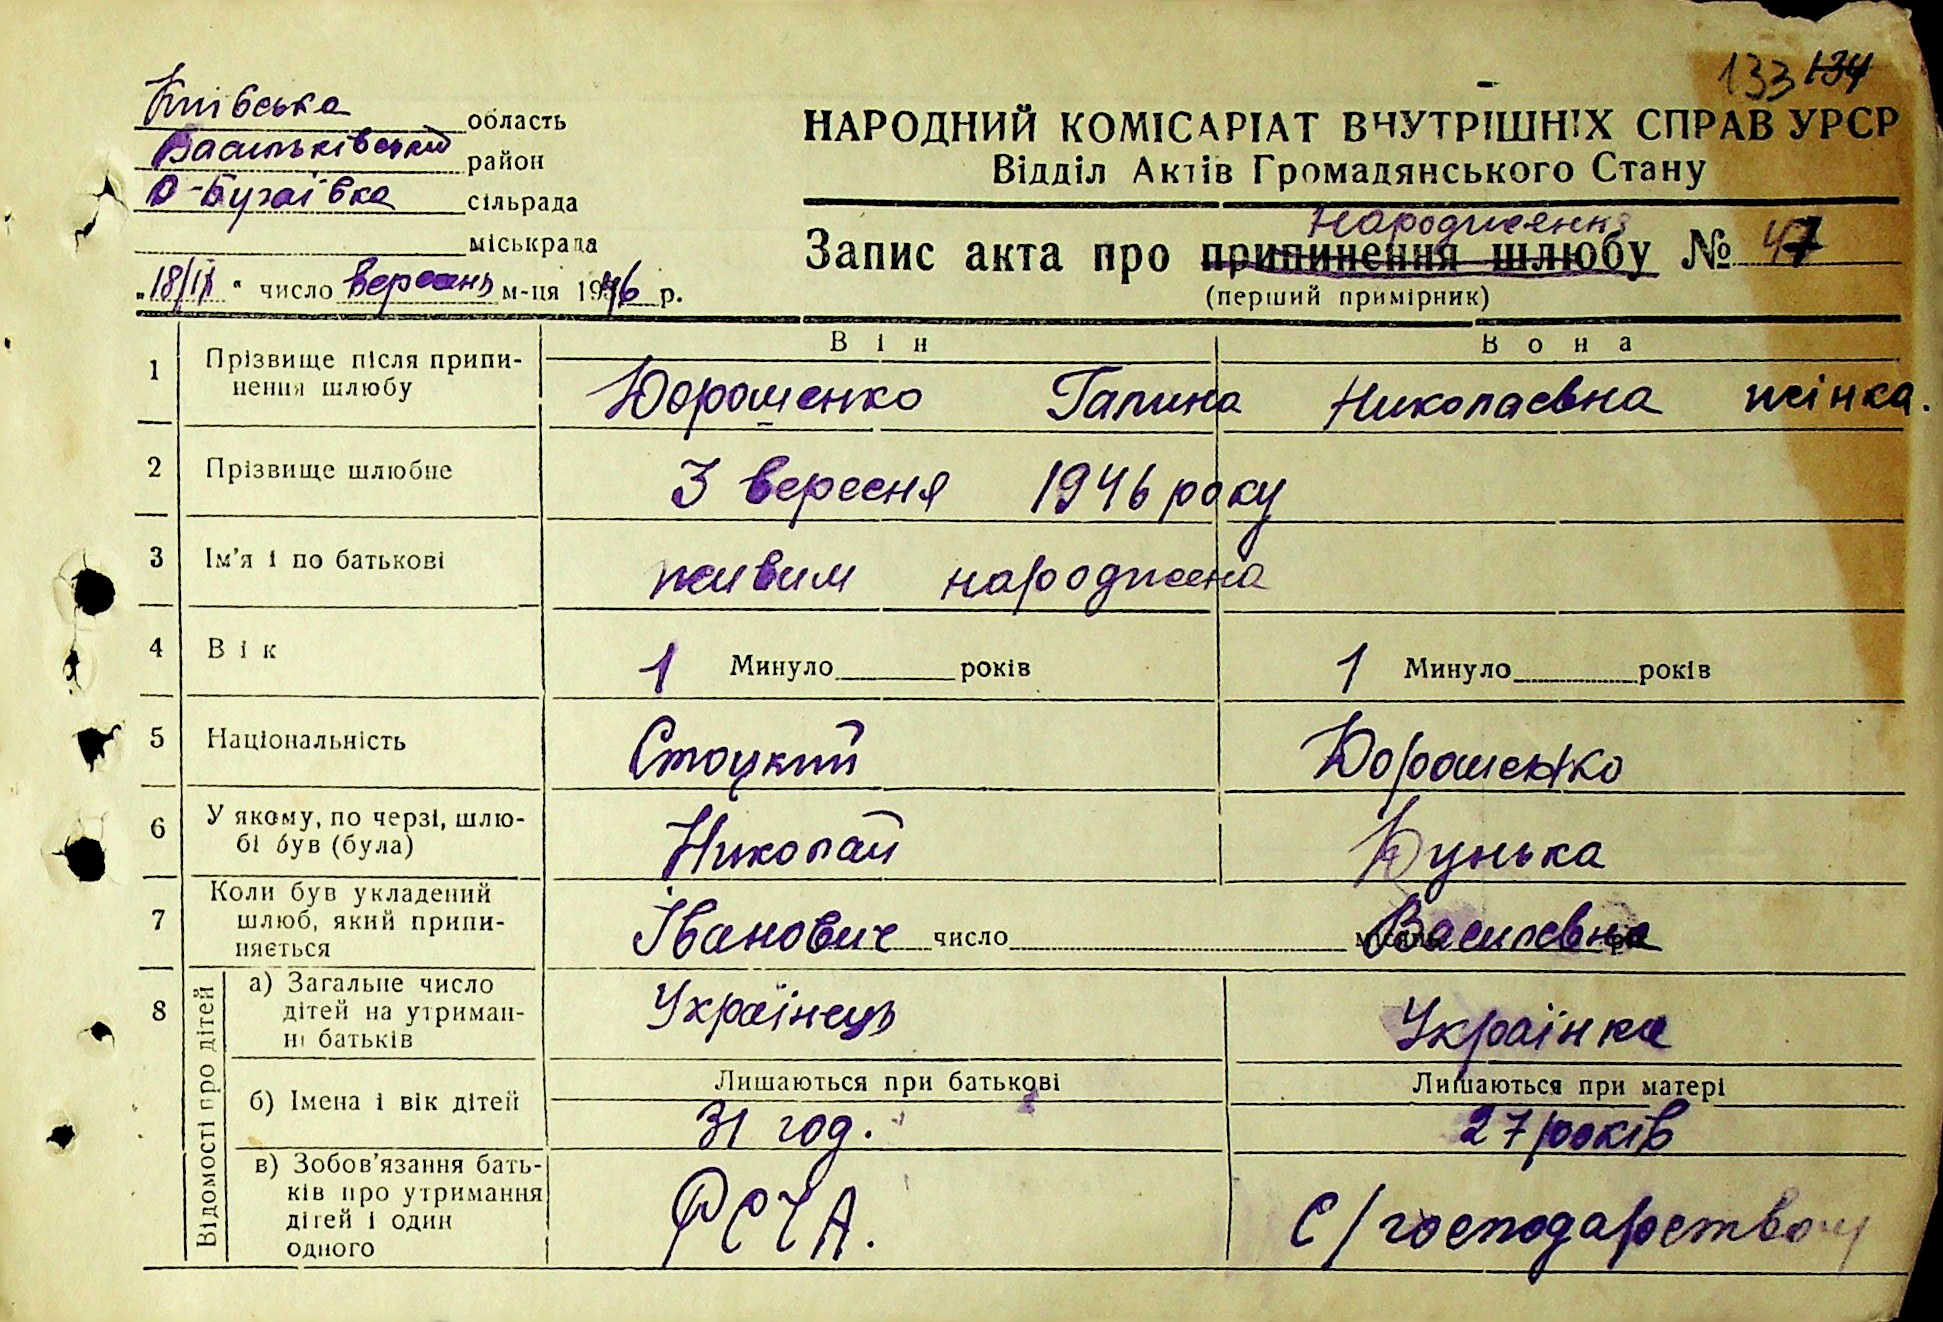 133 134
Київська область
Васильківський район
О-Бугаївка сільрада
міськрада
„18/IX“ число вересень м-ця 1946 р.
НАРОДНИЙ КОМІСАРІАТ ВНУТРІШНІХ СПРАВ УРСР
Відділ Актів Громадянського Стану
народження
Запис акта про припинення шлюбу № 47
(перший примірник)
Він Вона
1 Прізвище після припи-
нення шлюбу
Дорошенко Галина Николаевна жінка.
2 Прізвище шлюбне 3 вересня 1946 року
3 Ім'я і по батькові живим народжена
4 Вік 1 Минуло років 1 Минуло років
5 Національність Стоцкий Дорошенко
6 У якому, по черзі, шлю-
бі був (була)
Николай Дунька
7 Коли був укладений
шлюб, який припи-
няється
Іванович число Василевна
8 Відомості про дітей
а) Загальне число
дітей на утриман-
ні батьків
Українець Українка
Лишаються при батькові Лишаються при матері
б) Імена і вік дітей 31 год. 27 років
в) Зобов'язання бать-
ків про утримання
дітей і один
одного
РСЧА. С/господарством